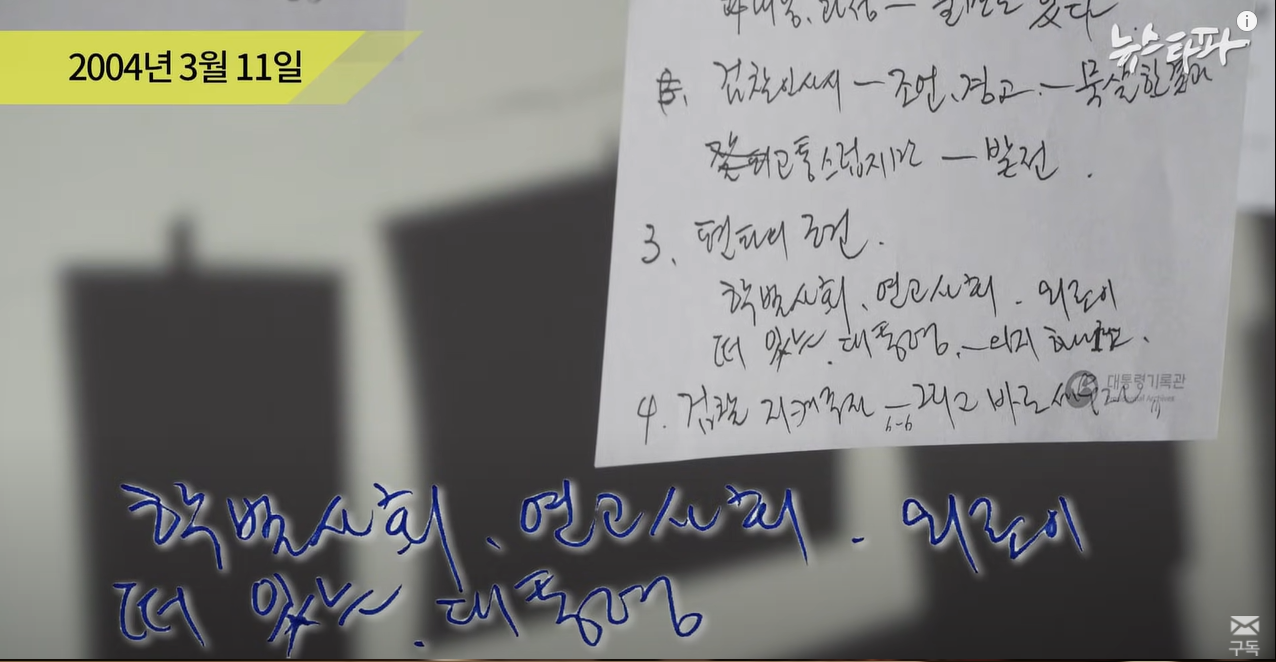 2004년 3월 11일
뉴스타파
있다
검찰인사시 — 조언, 경고. — 묵살한 결과
고통스럽지만 — 발전.
3. 편파의 조건.
학벌사회, 연고사회. 외로이
떠 있는. 대통령.
대통령기록관
Presidential Archives
4. 검찰 지켜주자 — 그리고 바로 세우자"
학벌사회, 연고사회. 외로이
떠 있는. 대통령
구독